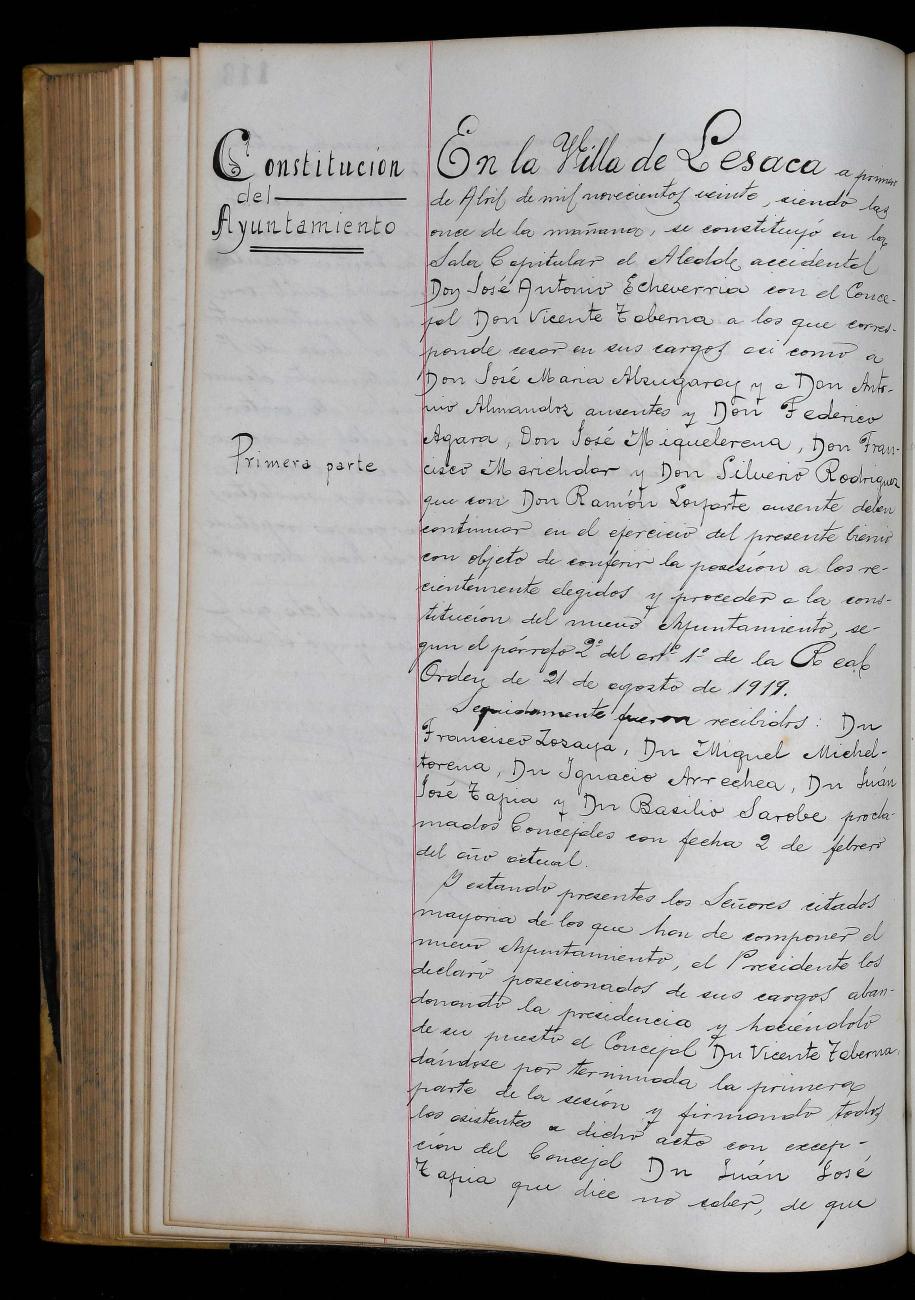 Constitución
del
Ayuntamiento
En la Villa de Lesaca a primero
de Abril de mil novecientos veinte, siendo las
once de la mañana, se constituyó en la
Sala Capitular el Alcalde accidental
Don José Antonio Echeverria con el Conce-
jal Don Vicente Taberna a los que corres-
ponde cesar en sus cargos asi como a
Don José Maria Alzugaray y a Don Anto-
nio Almandoz ausentes y Don Federico
Agara, Don José Miquelerena, Don Fran-
Primera parte
cisco Marichalar y Don Silverio Rodriguez
que con Don Ramón Loyarte ausente deben
continuar en el ejercicio del presente bienio
con objeto de conferir la posesión a los re-
cientemente elegidos y proceder a la cons-
titución del nuevo Ayuntamiento, se-
gun el párrafo 2º del artº 1º de la Real
Orden de 21 de agosto de 1919.
Seguidamente fueron recibidos: Dn
Francisco Lozaya, Dn Miguel Michel-
torena, Dn Ignacio Arrechea, Dn Juán
José Tapia y Dn Basilio Sarobe procla-
mados Concejales con fecha 2 de febrero
del año actual.
Y estando presentes los Señores citados
mayoria de los que han de componer el
nuevo Ayuntamiento, el Presidente los
declaró posesionados de sus cargos aban-
donando la presidencia y haciéndolo
de su puesto el Concejal Dn Vicente Taberna,
dándose por terminada la primera
parte de la sesión y firmando todos
los asistentes a dicho acto con excep-
ción del Concejal Dn Juán José
Tapia que dice no saber, de que